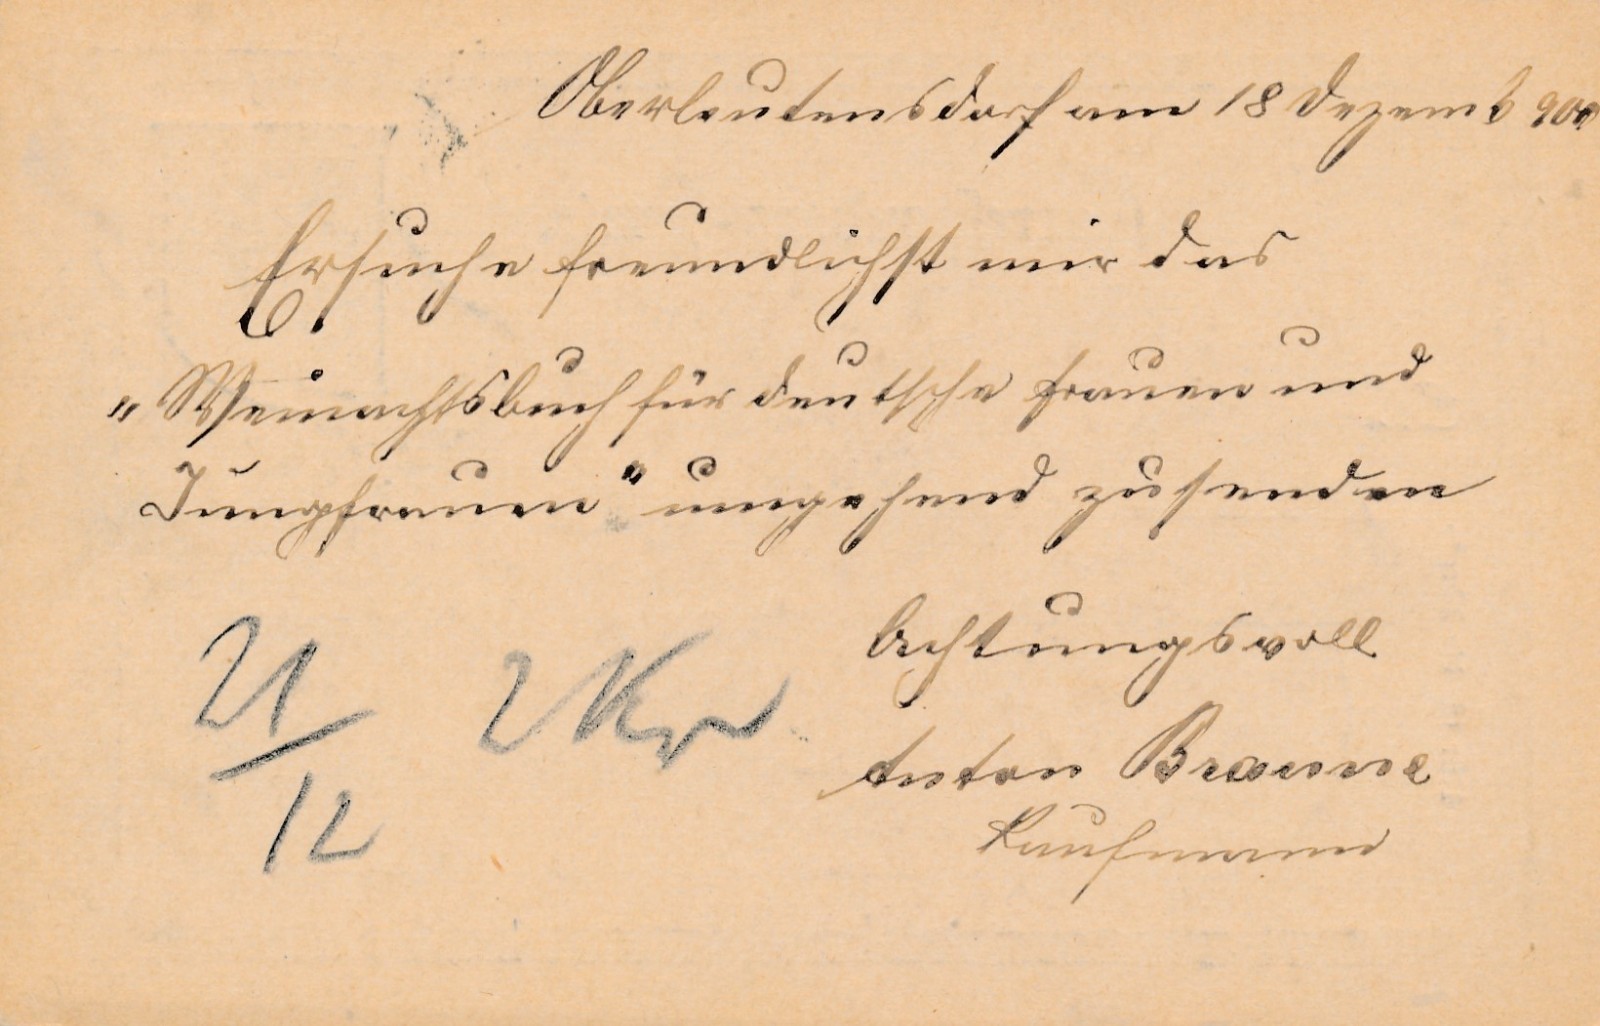 Oberleutensdorf am 18 Dezemb 900
Ersuche freundlichst mir das
„Weinachtsbuch für deutsche Frauen und
Jungfrauen" umgehend zusenden
Achtungsvoll
Anton Braune
Kaufmann
21/12 2 Kr